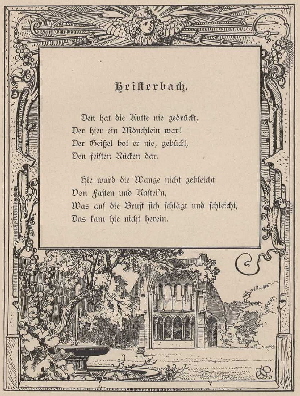 Heisterbach.
Den hat die Kutte nie gedrückt,
Der hier ein Mönchlein war!
Der Geißel bot er nie, gebückt,
Den feisten Rücken dar.
Hie ward die Wange nicht gebleicht
Von Fasten und Kastei'n,
Was auf die Brust sich schlägt und schleicht,
Das kam hie nicht herein.